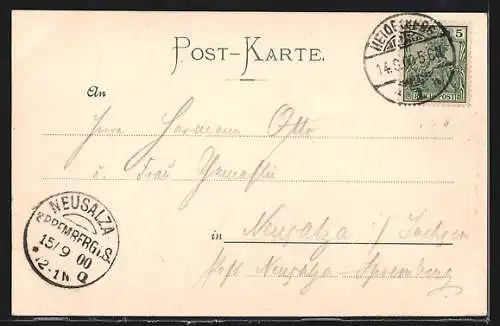 POST-KARTE.
HEIDELBERG
14.9.
5
An
Herrn Hermann Otto
u. Frau Gemahlin
in Neusalza i/Sachsen
Post Neusalza-Spremberg
NEUSALZA
SPREMBERG i.S.
15/9 00
*12-1N. Q